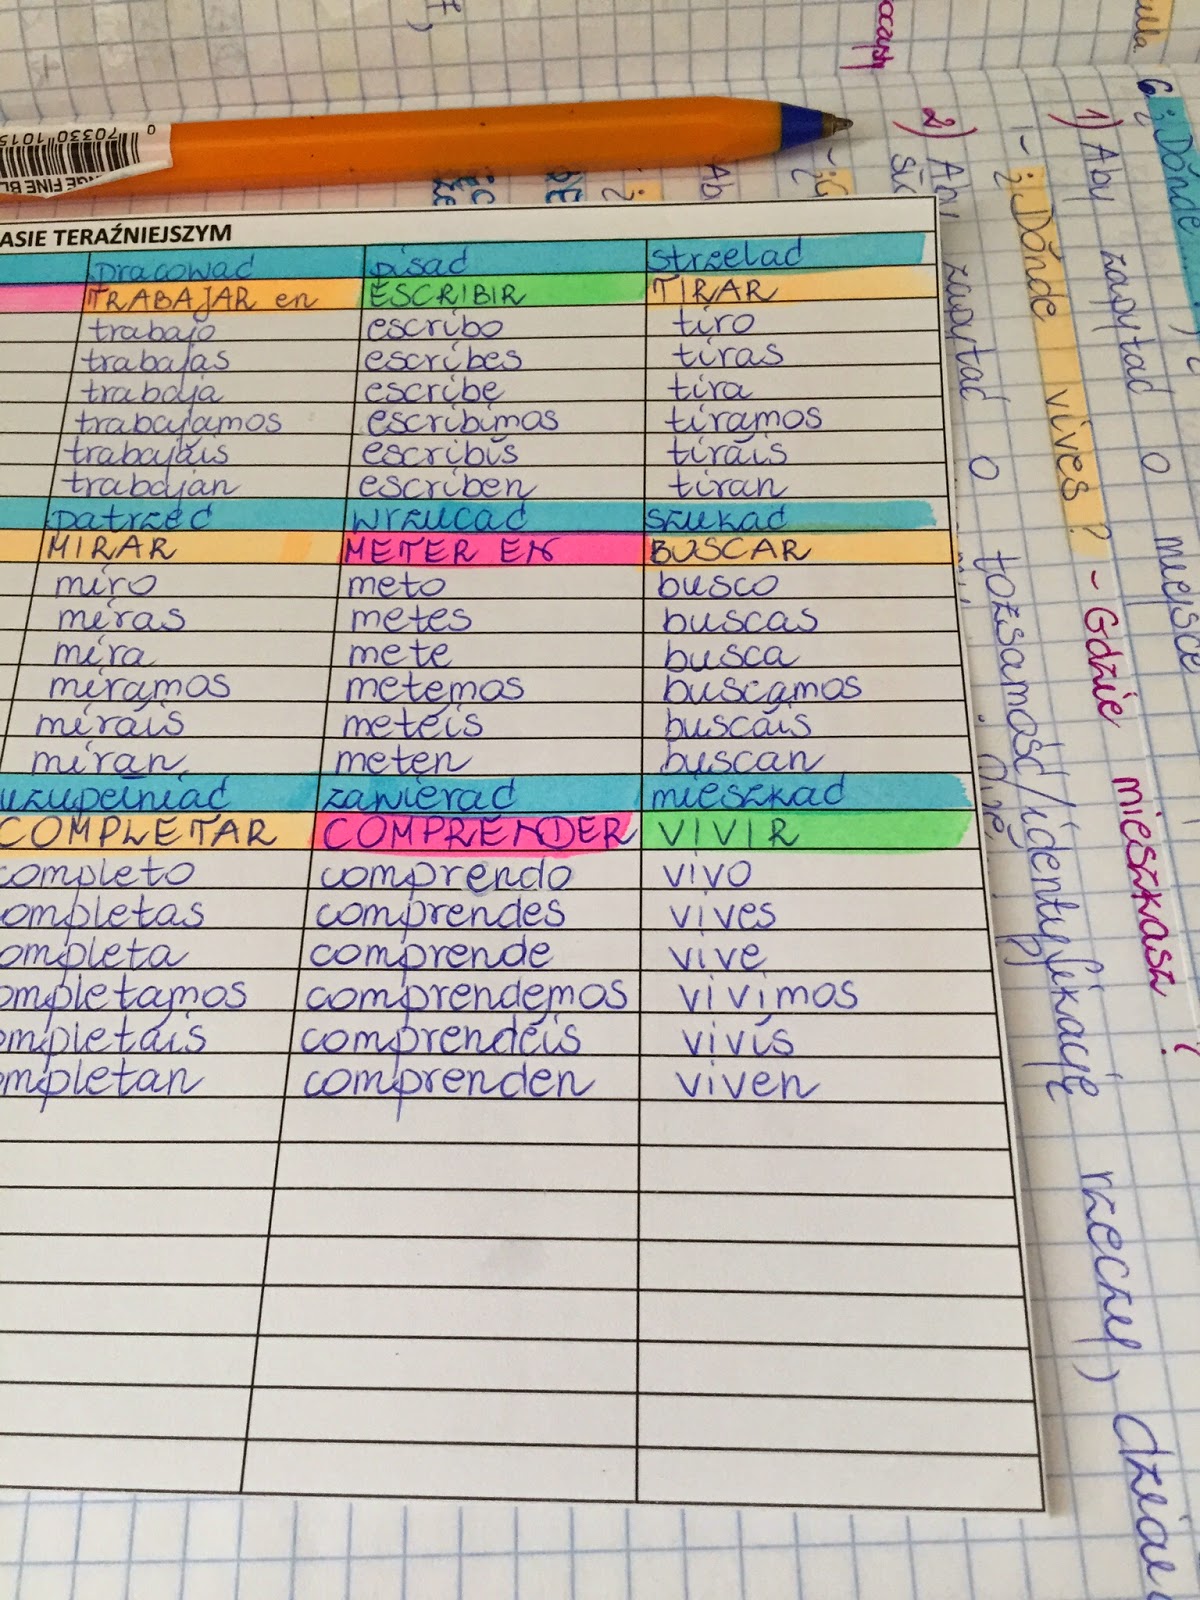 0 70330 1015
GE FINE BL
ASIE TERAŹNIEJSZYM
pracować pisać strzelać
TRABAJAR en ESCRIBIR TIRAR
trabajo escribo tiro
trabajas escribes tiras
trabaja escribe tira
trabajamos escribimos tiramos
trabajáis escribís tiráis
trabajan escriben tiran
patrzeć wrzucać szukać
MIRAR METER EN BUSCAR
miro meto busco
miras metes buscas
mira mete busca
miramos metemos buscamos
miráis metéis buscáis
miran meten buscan
uzupełniać zawierać mieszkać
COMPLETAR COMPRENDER VIVIR
completo comprendo vivo
ompletas comprendes vives
ompleta comprende vive
ompletamos comprendemos vivimos
ompletáis comprendéis vivís
mpletan comprenden viven
6. ¿Dónde.....
1) Aby zapytać o miejsce
- ¿Dónde vives? - Gdzie mieszkasz?
2) Aby zapytać o tożsamość/identyfikację rzeczy,